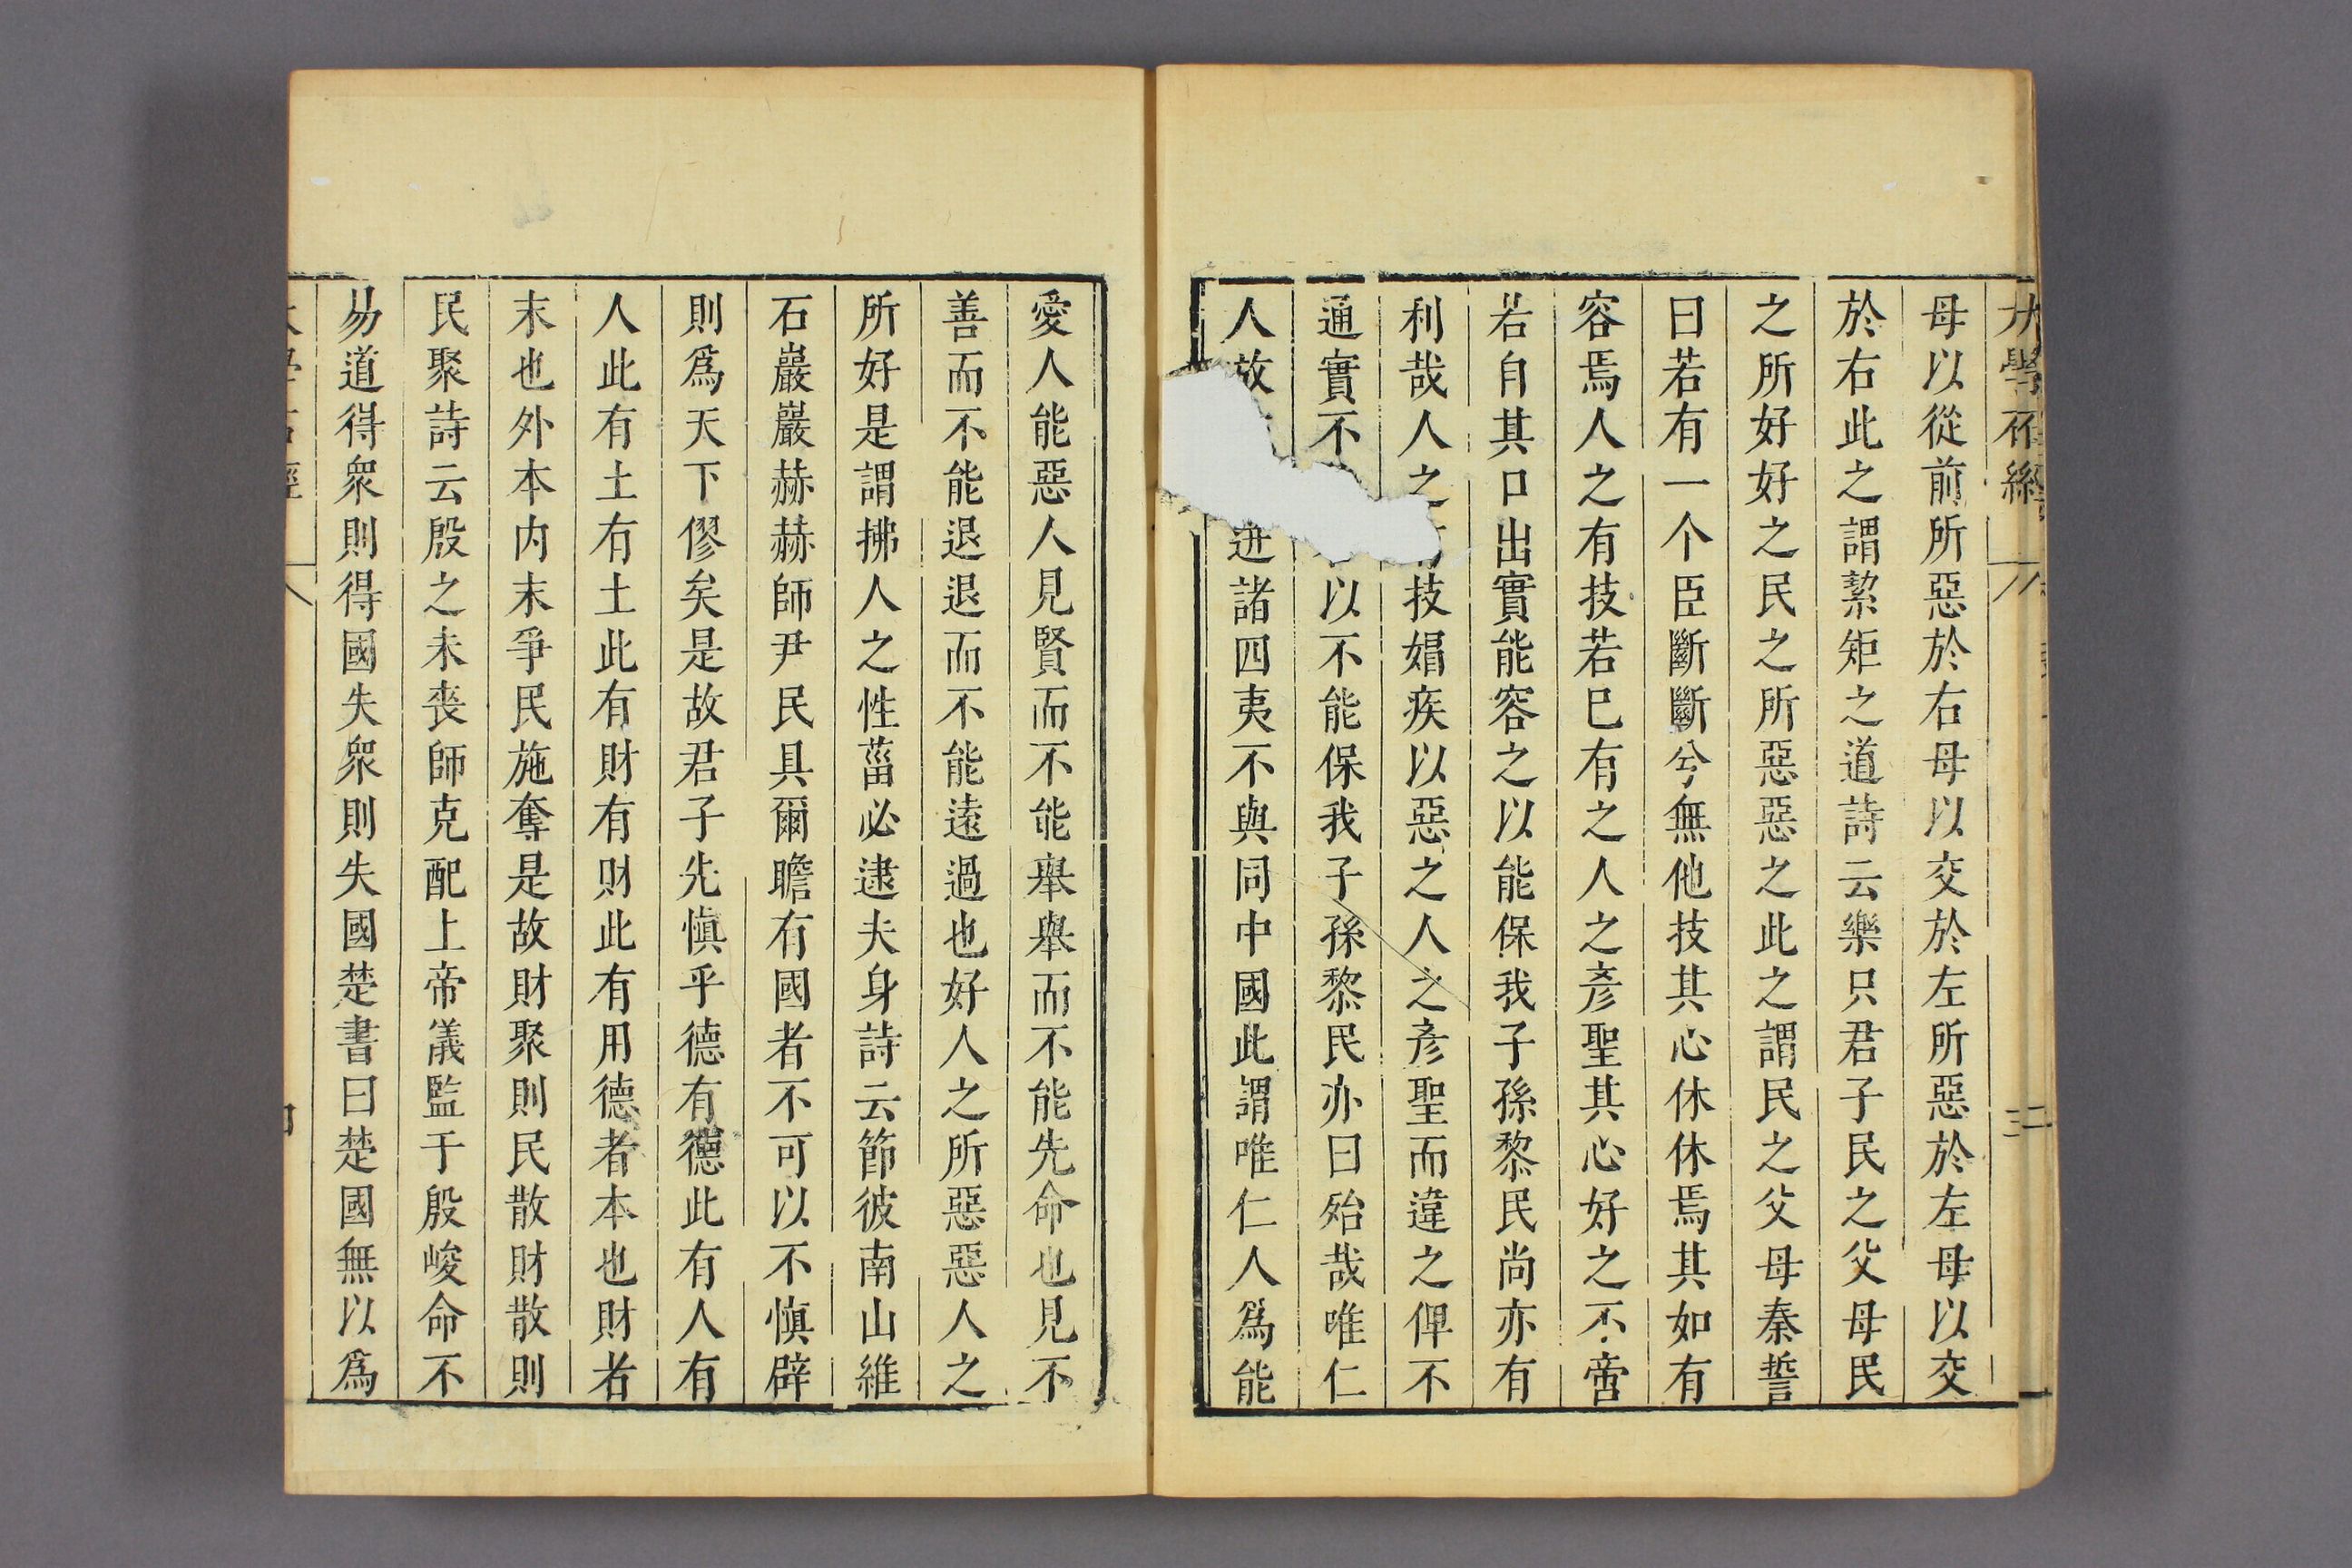 母以從前所惡於右母以交於左所惡於左母以交
於右此之謂絜矩之道詩云樂只君子民之父母民
之所好好之民之所惡惡之此之謂民之父母秦誓
曰若有一个臣斷斷兮無他技其心休休焉其如有
容焉人之有技若已有之人之彥聖其心好之不啻
若自其口出實能容之以能保我子孫黎民尚亦有
利哉人之有技媢疾以惡之人之彥聖而違之俾不
通實不以不能保我子孫黎民亦曰殆哉唯仁
人放迸諸四夷不與同中國此謂唯仁人爲能
愛人能惡人見賢而不能舉舉而不能先命也見不
善而不能退退而不能遠過也好人之所惡惡人之
所好是謂拂人之性菑必逮夫身詩云節彼南山維
石巖巖赫赫師尹民具爾瞻有國者不可以不愼辟
則爲天下僇矣是故君子先愼乎德有德此有人有
人此有土有土此有財有財此有用德者本也財者
末也外本内末爭民施奪是故財聚則民散財散則
民聚詩云殷之未喪師克配上帝儀監于殷峻命不
易道得衆則得國失衆則失國楚書曰楚國無以爲